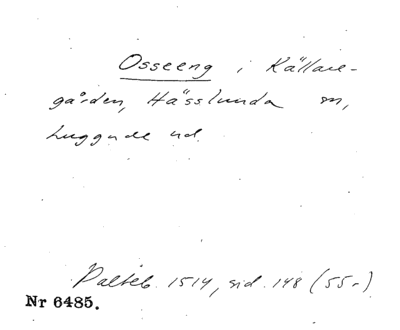 Osseeng i Källare-
gården, Hässlunda sn,
Luggude hd.
Palteb. 1514, sid. 148 (55-)
Nr 6485.